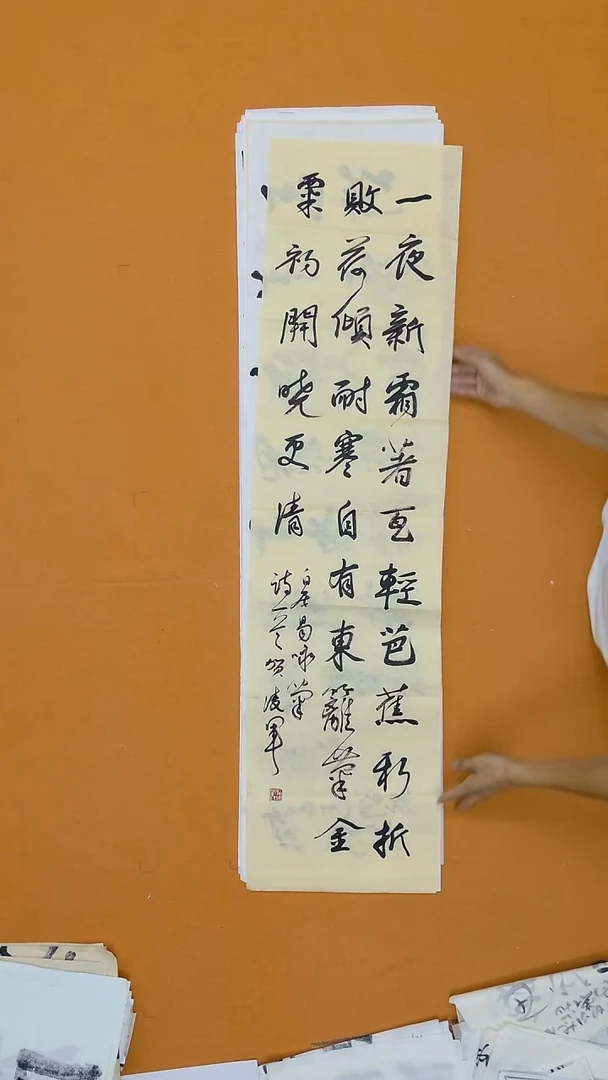 一夜新霜著瓦輕芭蕉新折
敗荷傾耐寒自有東籬菊金
粟初開曉更清
白居易咏菊
詩一首賀凌軍